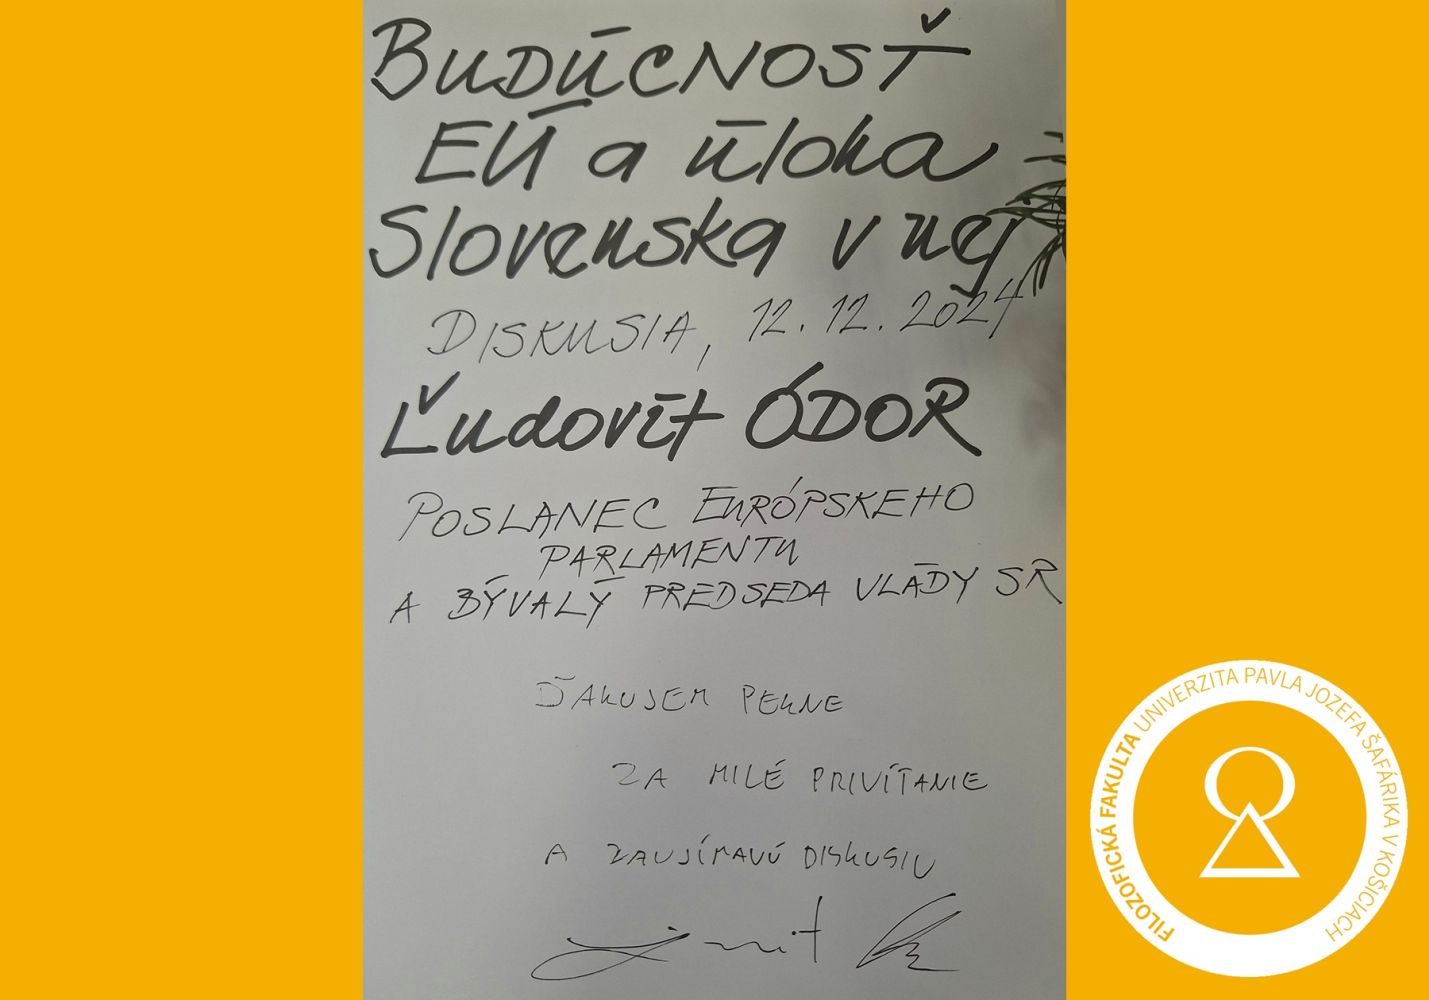 BUDÚCNOSŤ
EÚ a úloha
Slovenska v nej
DISKUSIA, 12.12.2024
Ľudovít ÓDOR
POSLANEC EURÓPSKEHO
PARLAMENTU
A BÝVALÝ PREDSEDA VLÁDY SR
ĎAKUJEM PEKNE
ZA MILÉ PRIVÍTANIE
A ZAUJÍMAVÚ DISKUSIU
FILOZOFICKÁ FAKULTA UNIVERZITA PAVLA JOZEFA ŠAFÁRIKA V KOŠICIACH